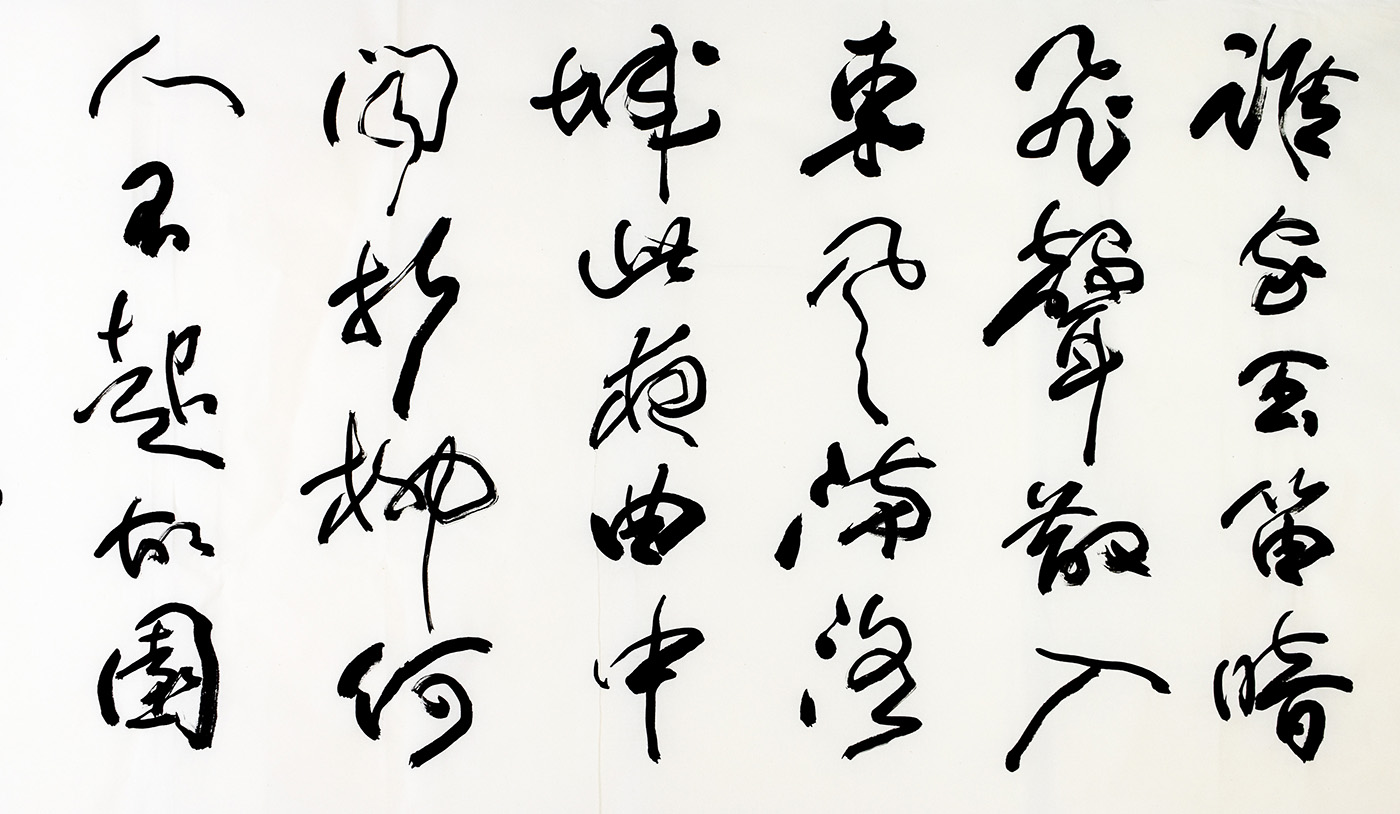 誰家玉笛暗
飛聲散入
東風滿洛
城此夜曲中
聞折柳何
人不起故園